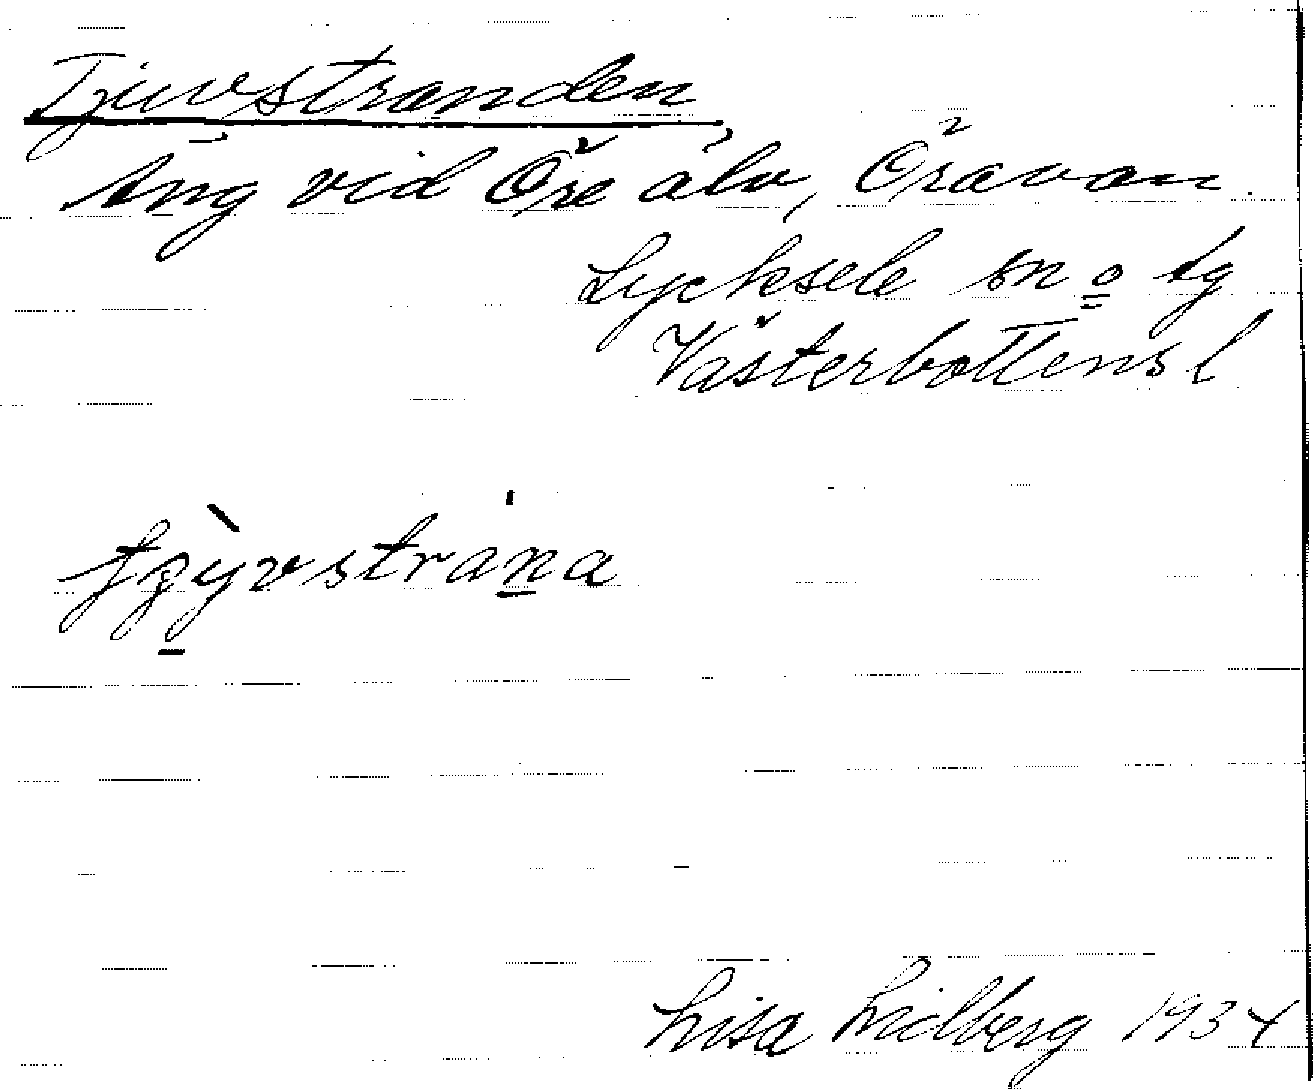 Tjuvstranden
Äng vid Öre älv, Öravan.
Lycksele sn o tg
Västerbottens l
Lisa Lidberg 1934